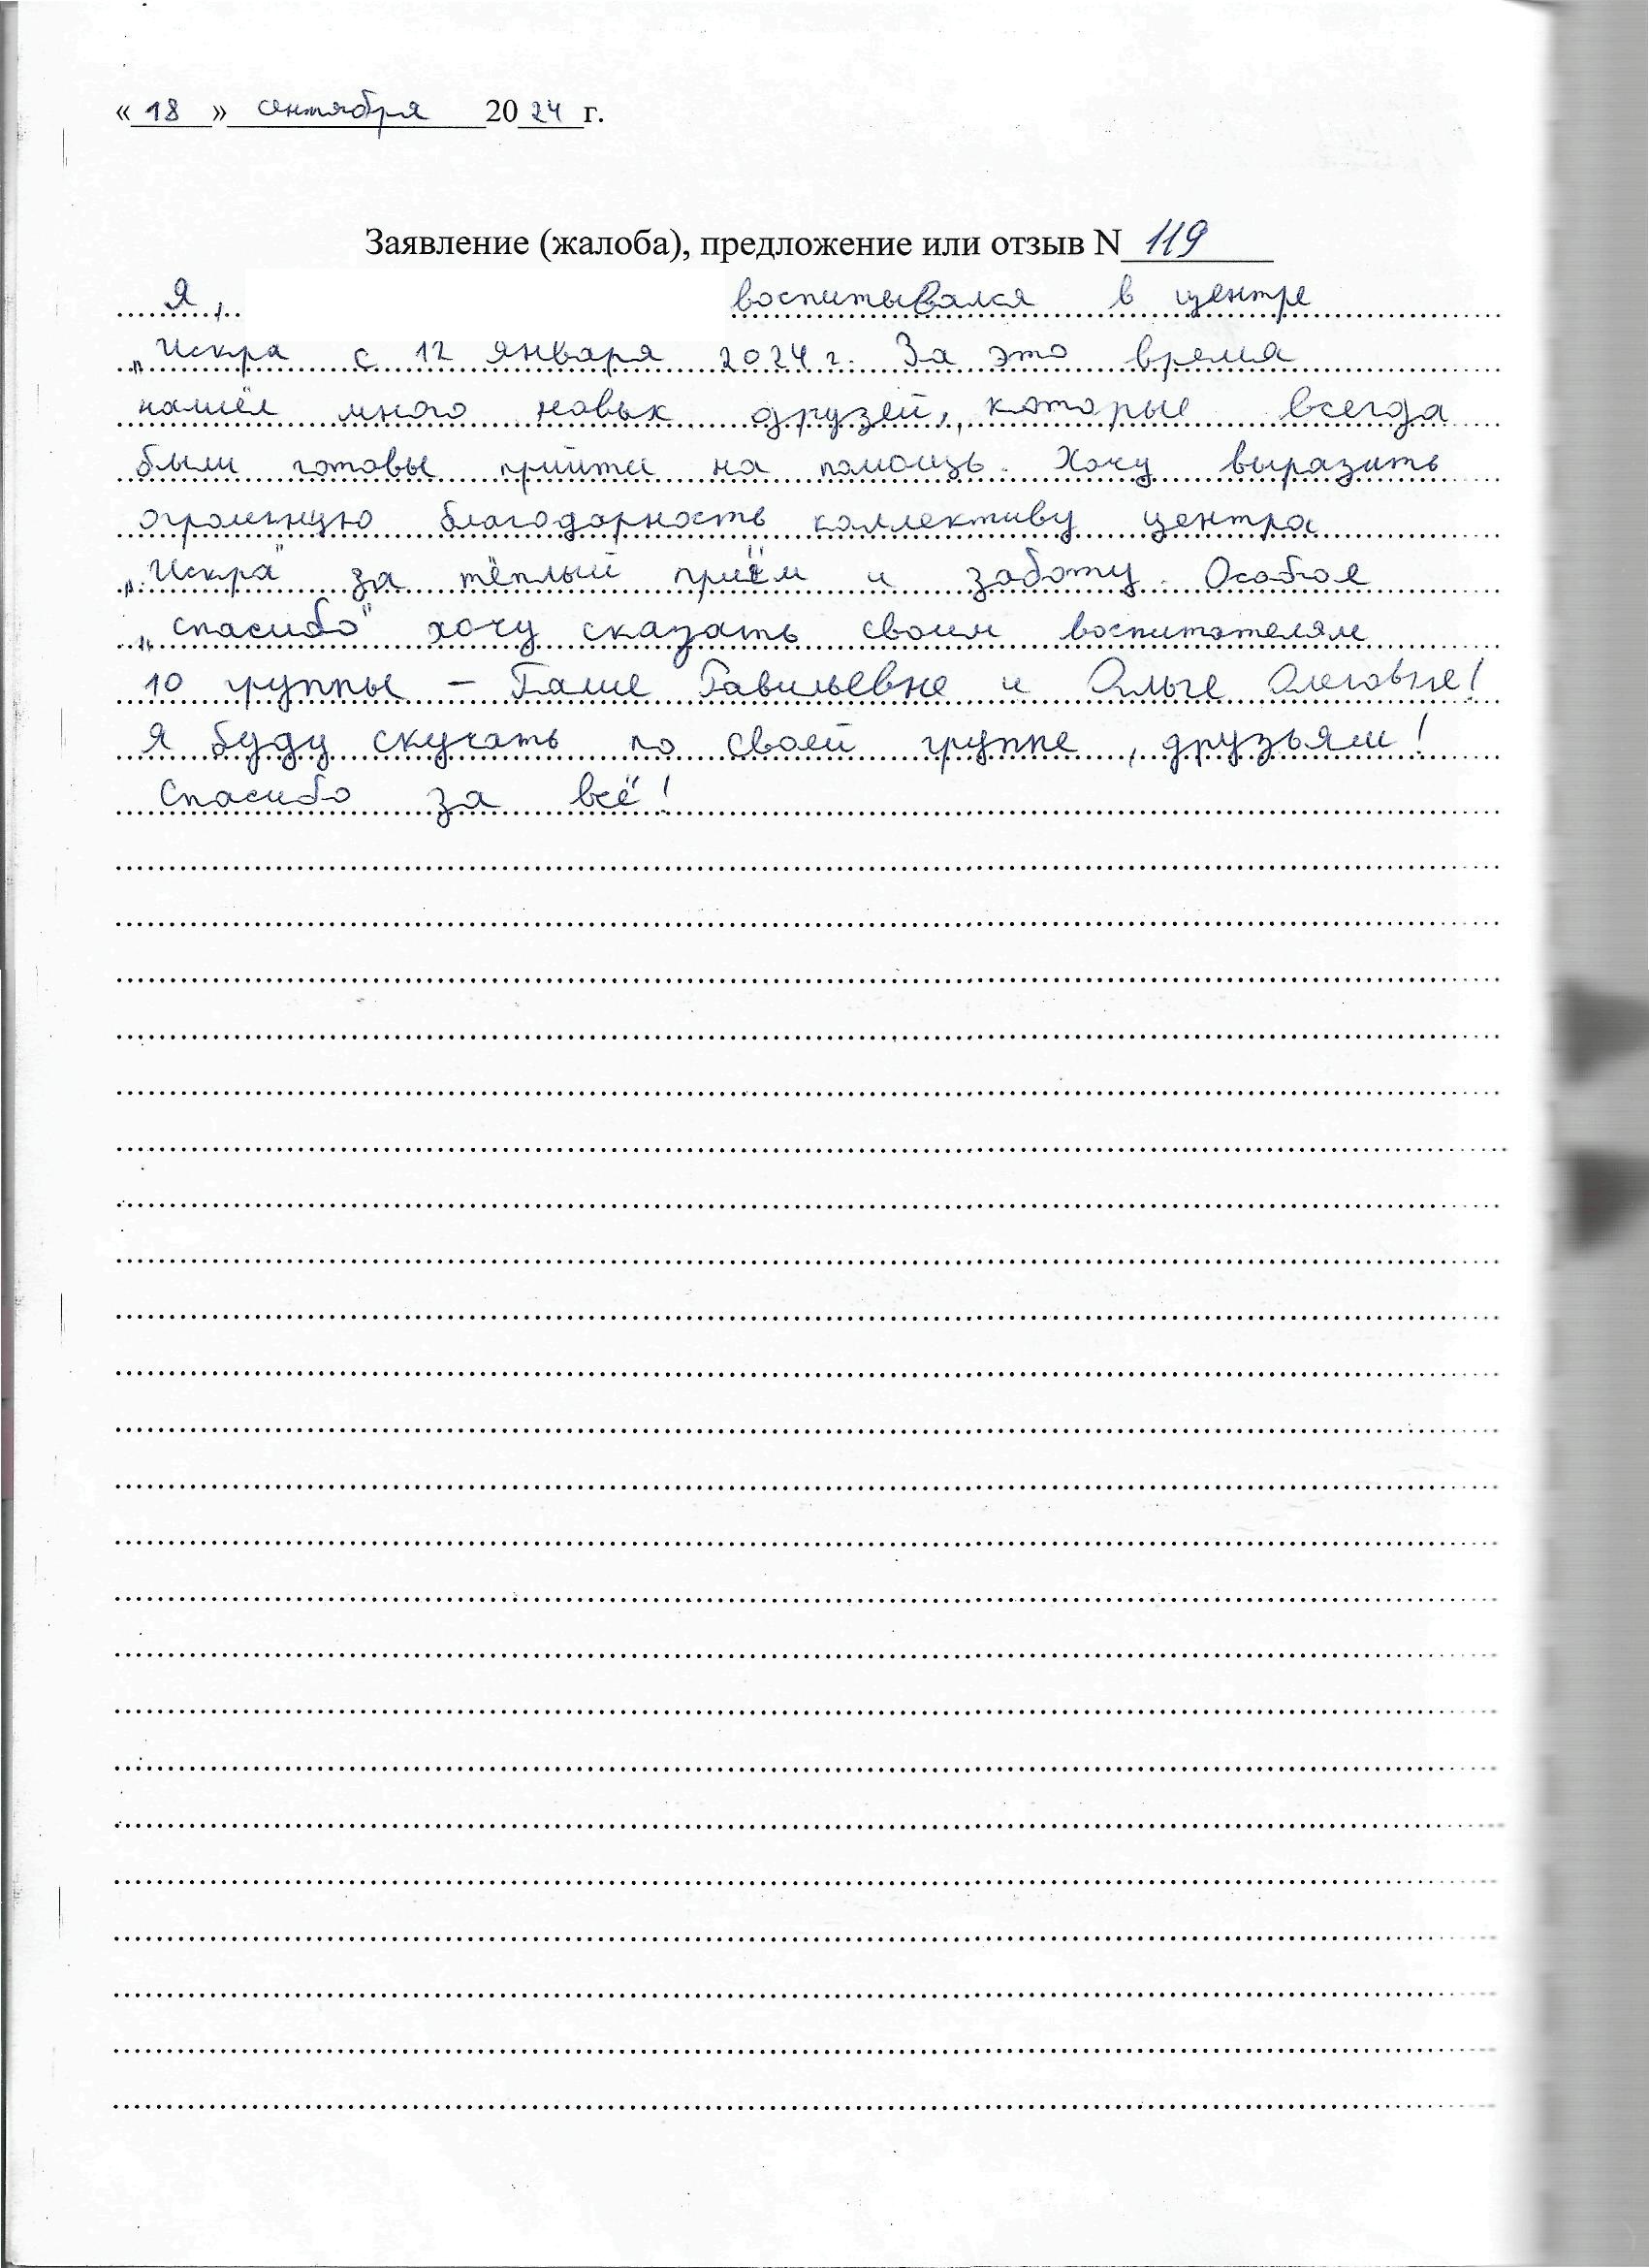 « 18 » сентября 2024 г.
Заявление (жалоба), предложение или отзыв N 119
Я, воспитывался в центре
„Искра с 12 января 2024 г. За это время
нашёл много новых друзей, которые всегда
были готовы прийти на помощь. Хочу выразить
огромную благодарность коллективу центра
„Искра" за тёплый приём и заботу. Особое
„спасибо" хочу сказать своим воспитателям
10 группы – Гавильевне и Ольге Олеговне!
Я буду скучать по своей группе, друзьям!
Спасибо за всё!